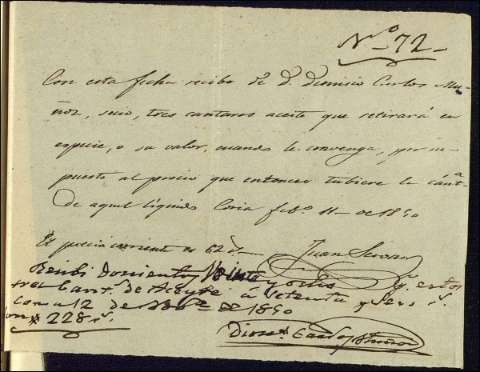 Nº 72
Con esta fecha recibo de D. Dionisio Carlos Mu-
ñoz, seis, tres cantaros aceite que retirará en
especie, o su valor, cuando le convenga, por
puesto al precio que entonces tubiere la cántª
de aquel liquido Coria feb.º 11 de 1850
El precio corriente es 62 r.
Juan
Recibi Doscientos Veinte y ocho r. estos
tres Cant. de Aceyte a Setenta y Seis r.
Coria 12 de de 1850
Son 228 r.
Dion.º Carlos Muñoz